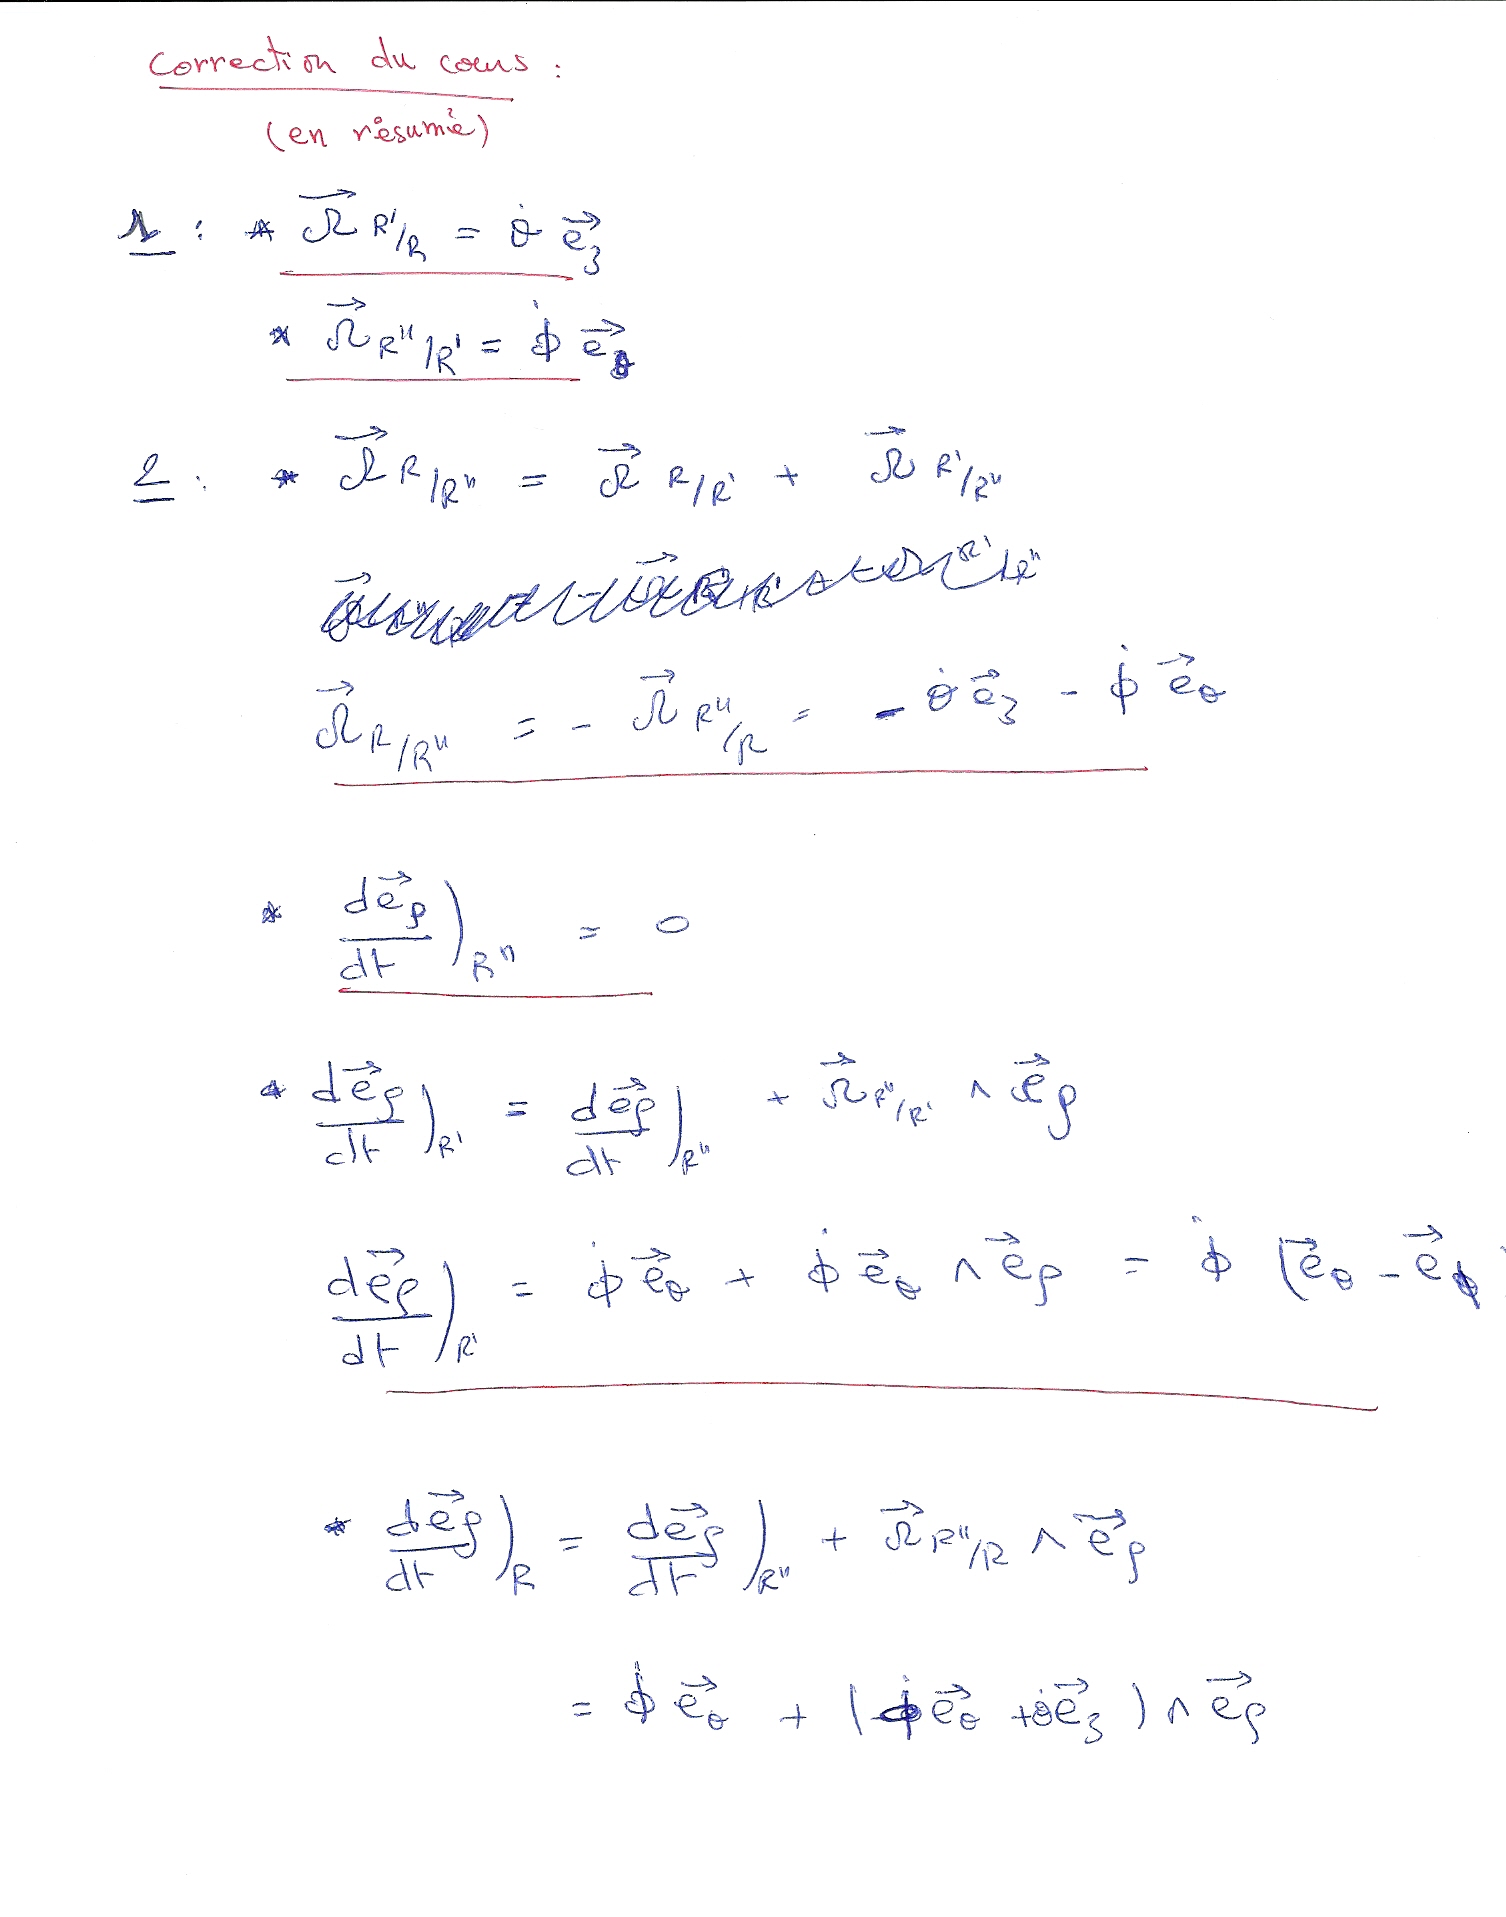 Correction du cours :
(en résumé)
1 : * Ω⃗ R'/R = θ̇ e⃗₃
* Ω⃗ R''/R' = φ̇ e⃗θ
2 : * Ω⃗ R/R'' = Ω⃗ R/R' + Ω⃗ R'/R''
Ω⃗ R/R'' = - Ω⃗ R''/R = - θ̇ e⃗₃ - φ̇ e⃗θ
* de⃗ρ/dt )R'' = 0
* de⃗ρ/dt )R' = de⃗ρ/dt )R'' + Ω⃗ R''/R' ∧ e⃗ρ
de⃗ρ/dt )R' = φ̇ e⃗θ + φ̇ e⃗θ ∧ e⃗ρ = φ̇ (e⃗θ - e⃗φ
* de⃗ρ/dt )R = de⃗ρ/dt )R'' + Ω⃗ R''/R ∧ e⃗ρ
= φ̇ e⃗θ + (φ̇ e⃗θ + θ̇ e⃗₃) ∧ e⃗ρ